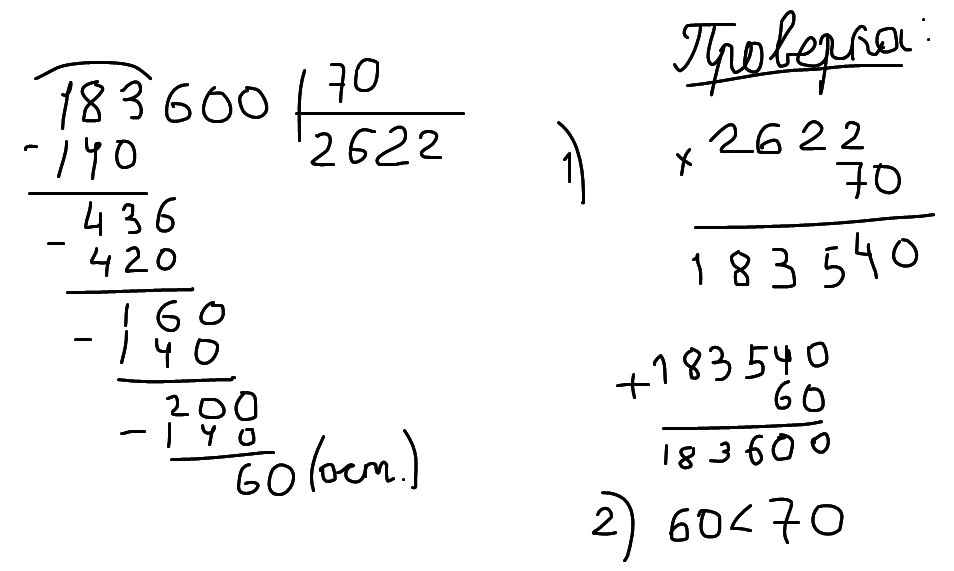 183600 70
2622
-140
436
- 420
160
- 140
200
- 140
60 (ост.)
Проверка:
1) × 2622
70
183540
+183540
60
183600
2) 60<70